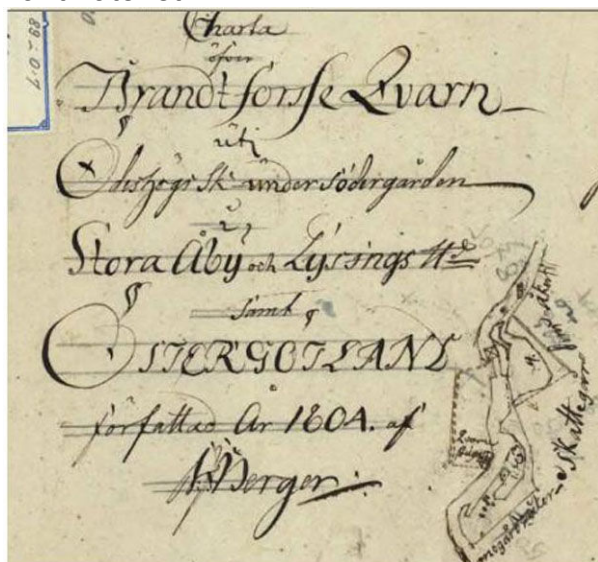 Charta
öfver
Brandtforsse Qvarn
uti
Ödeshögs Sk: under Södergården
Stora Åby och Lysings Hd
samt
ÖSTERGÖTLAND
författad År 1804. af
Berger.
89-0:7
Skattegår